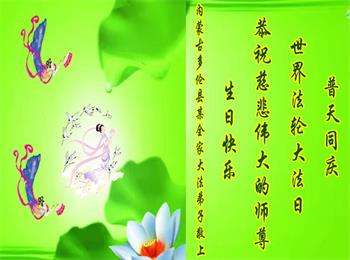 普天同庆
世界法轮大法日
恭祝慈悲伟大的师尊
生日快乐
内蒙古多伦县某全家大法弟子敬上